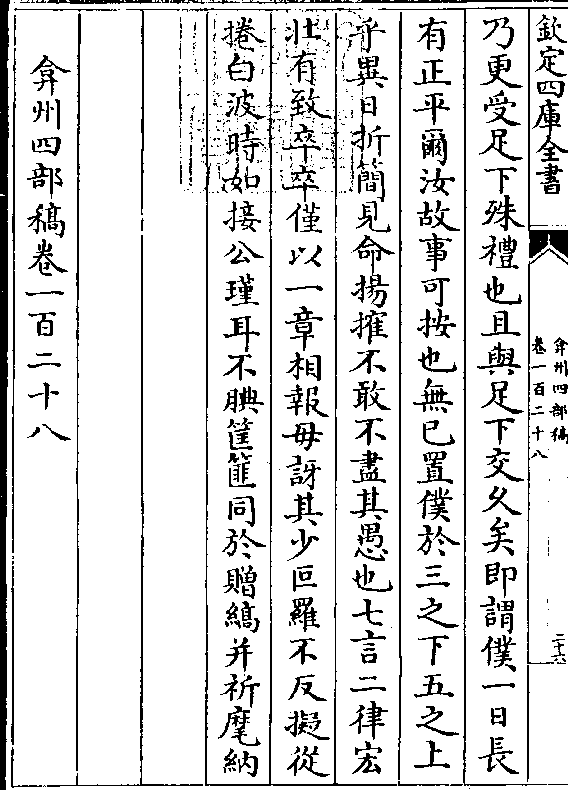 欽定四庫全書
弇州四部稿
卷一百二十八
二十六
乃更受足下殊禮也且與足下交久矣即謂僕一日長
有正平爾汝故事可按也無已置僕於三之下五之上
乎異日折簡見命揚搉不敢不盡其愚也七言二律宏
壯有致卒卒僅以一章相報毋訝其少叵羅不反擬從
捲白波時如接公瑾耳不腆筐篚同於贈縞并祈麾納
弇州四部稿卷一百二十八